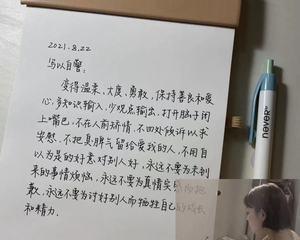 2021.8.22
写以自警:
变得温柔、大度、勇敢,保持善良和爱
心,多知识输入,少观点输出,打开脑子闭
上嘴巴,不在人前矫情,不四处倾诉以求
安慰,不把真脾气留给爱我的人,不用自
以为是的好意对别人好,永远不要为未到
来的事情烦恼,永远不要为真情实
歉,永远不要为讨好别人而牺牲自己的成长
和精力.
never